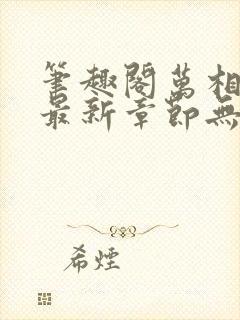 筆趣閣萬相
最新章節無
希煙